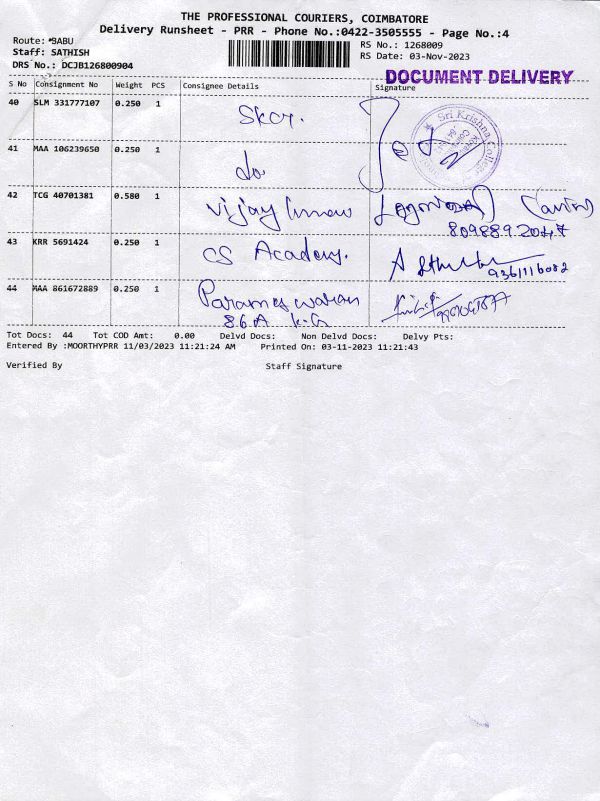 THE PROFESSIONAL COURIERS, COIMBATORE
Delivery Runsheet - PRR - Phone No.:0422-3505555 - Page No.:4
Route: *BABU
Staff: SATHISH
DRS No.: DCJB126800904
RS No.: 1268009
RS Date: 03-Nov-2023
DOCUMENT DELIVERY
S No Consignment No Weight PCS Consignee Details Signature
40 SLM 331777107 0.250 1
Sri Krishna College
41 MAA 106239650 0.250 1 do
42 TCG 40701381 0.580 1 Vijay
43 KRR 5691424 0.250 1 CS Academy.
9361116082
44 MAA 861672889 0.250 1 Parameswaran
86 A K.G
Tot Docs: 44 Tot COD Amt: 0.00 Delvd Docs: Non Delvd Docs: Delvy Pts:
Entered By :MOORTHYPRR 11/03/2023 11:21:24 AM Printed On: 03-11-2023 11:21:43
Verified By Staff Signature